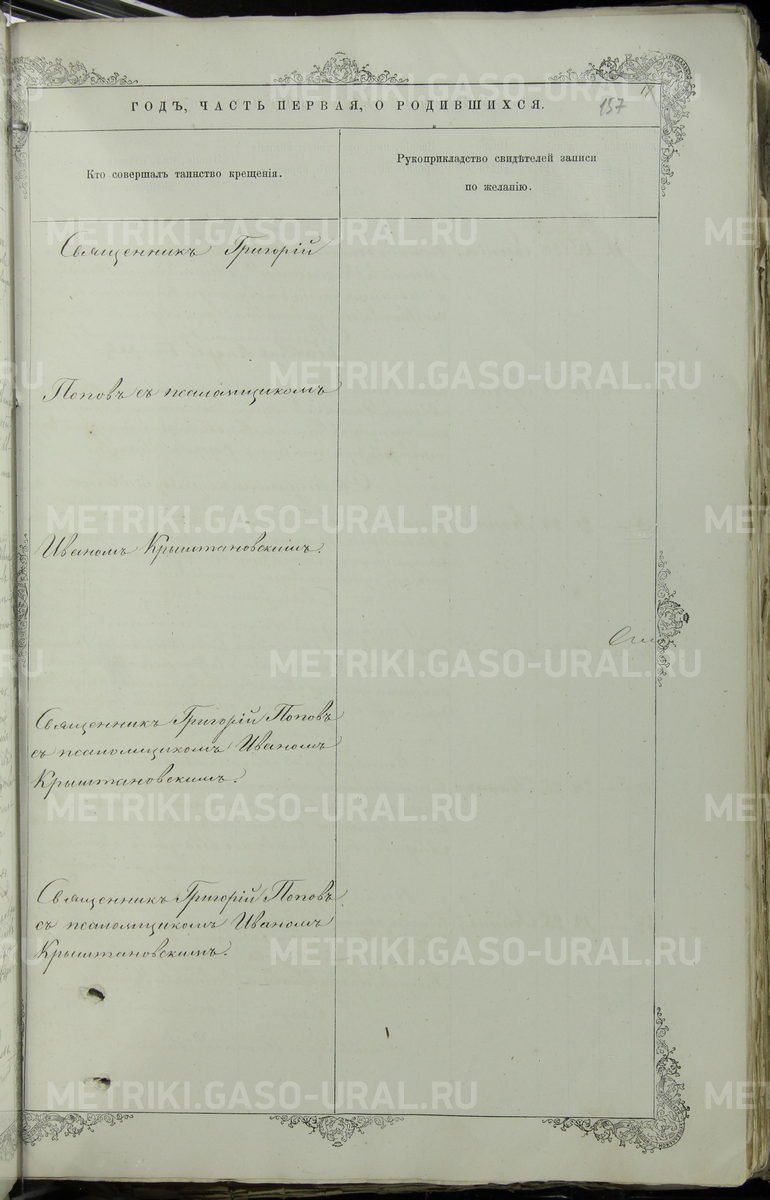 ГОДЪ, ЧАСТЬ ПЕРВАЯ, О РОДИВШИХСЯ.
157
Кто совершалъ таинство крещенія.
Рукоприкладство свидѣтелей записи
по желанію.
Священникъ Григорій
Поповъ съ псаломщикомъ
Иваномъ Крыштановскимъ.
Священникъ Григорій Поповъ
съ псаломщикомъ Иваномъ
Крыштановскимъ.
Священникъ Григорій Поповъ
съ псаломщикомъ Иваномъ
Крыштановскимъ.
METRIKI.GASO-URAL.RU